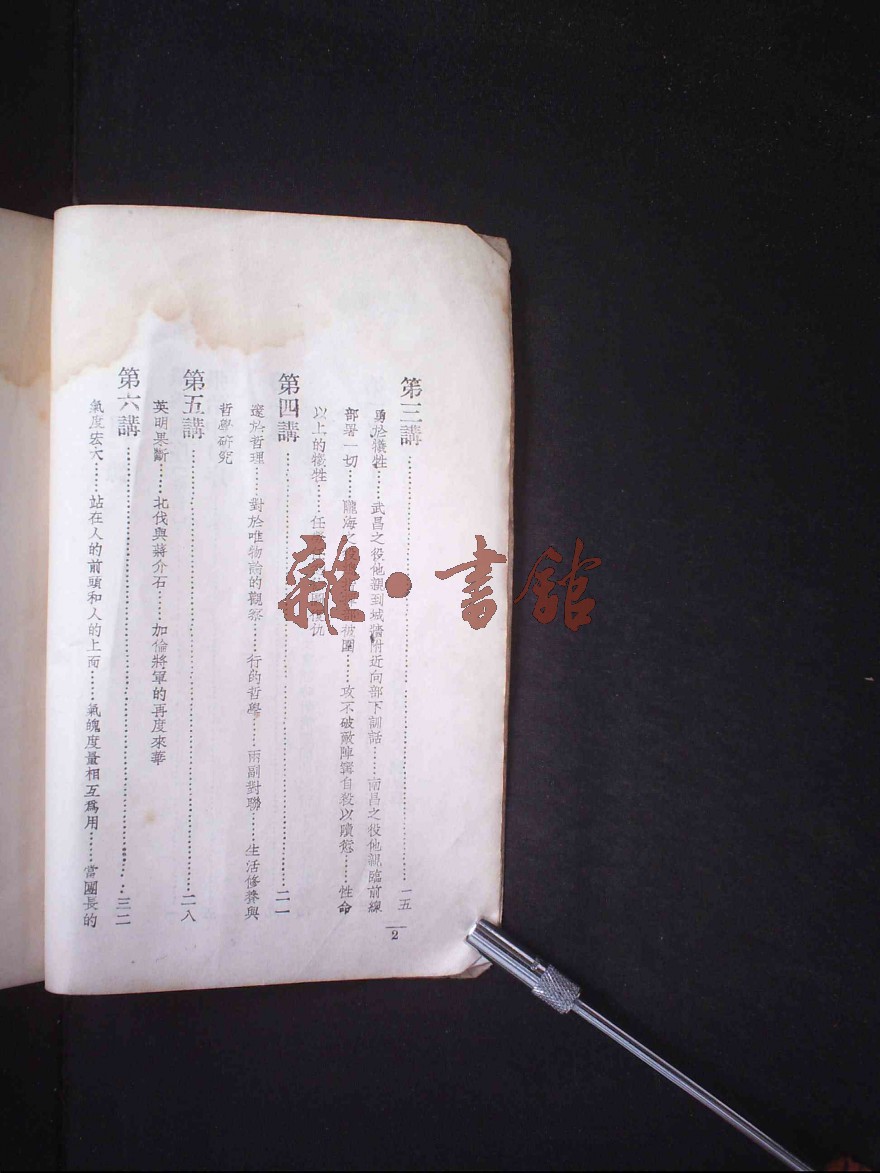 第三講……一五
勇於犧牲……武昌之役他親到城牆附近向部下訓話……南昌之役他親臨前線
部署一切……隴海之被圍……攻不破敵陣寧自殺以贖愆……性命
以上的犧牲……任仇
第四講……二一
邃於哲理……對於唯物論的觀察……行的哲學……兩副對聯……生活修養與
哲學研究
第五講……二八
英明果斷……北伐與蔣介石……加倫將軍的再度來華
第六講……三二
氣度宏大……站在人的前頭和人的上面……氣魄度量相互為用……當團長的
2
雜·書館